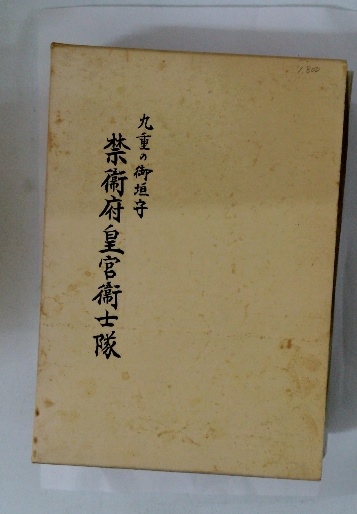 九重の御垣守
禁衛府皇宮衛士隊
1,800